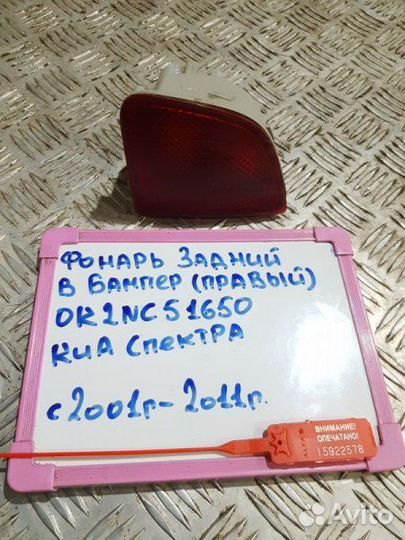 Фонарь Задний
в Бампер (правый)
OK2NC51650
Киа Спектра
с 2001г-2011г.
ВНИМАНИЕ!
ОПЕЧАТАНО!
15922578
Avito